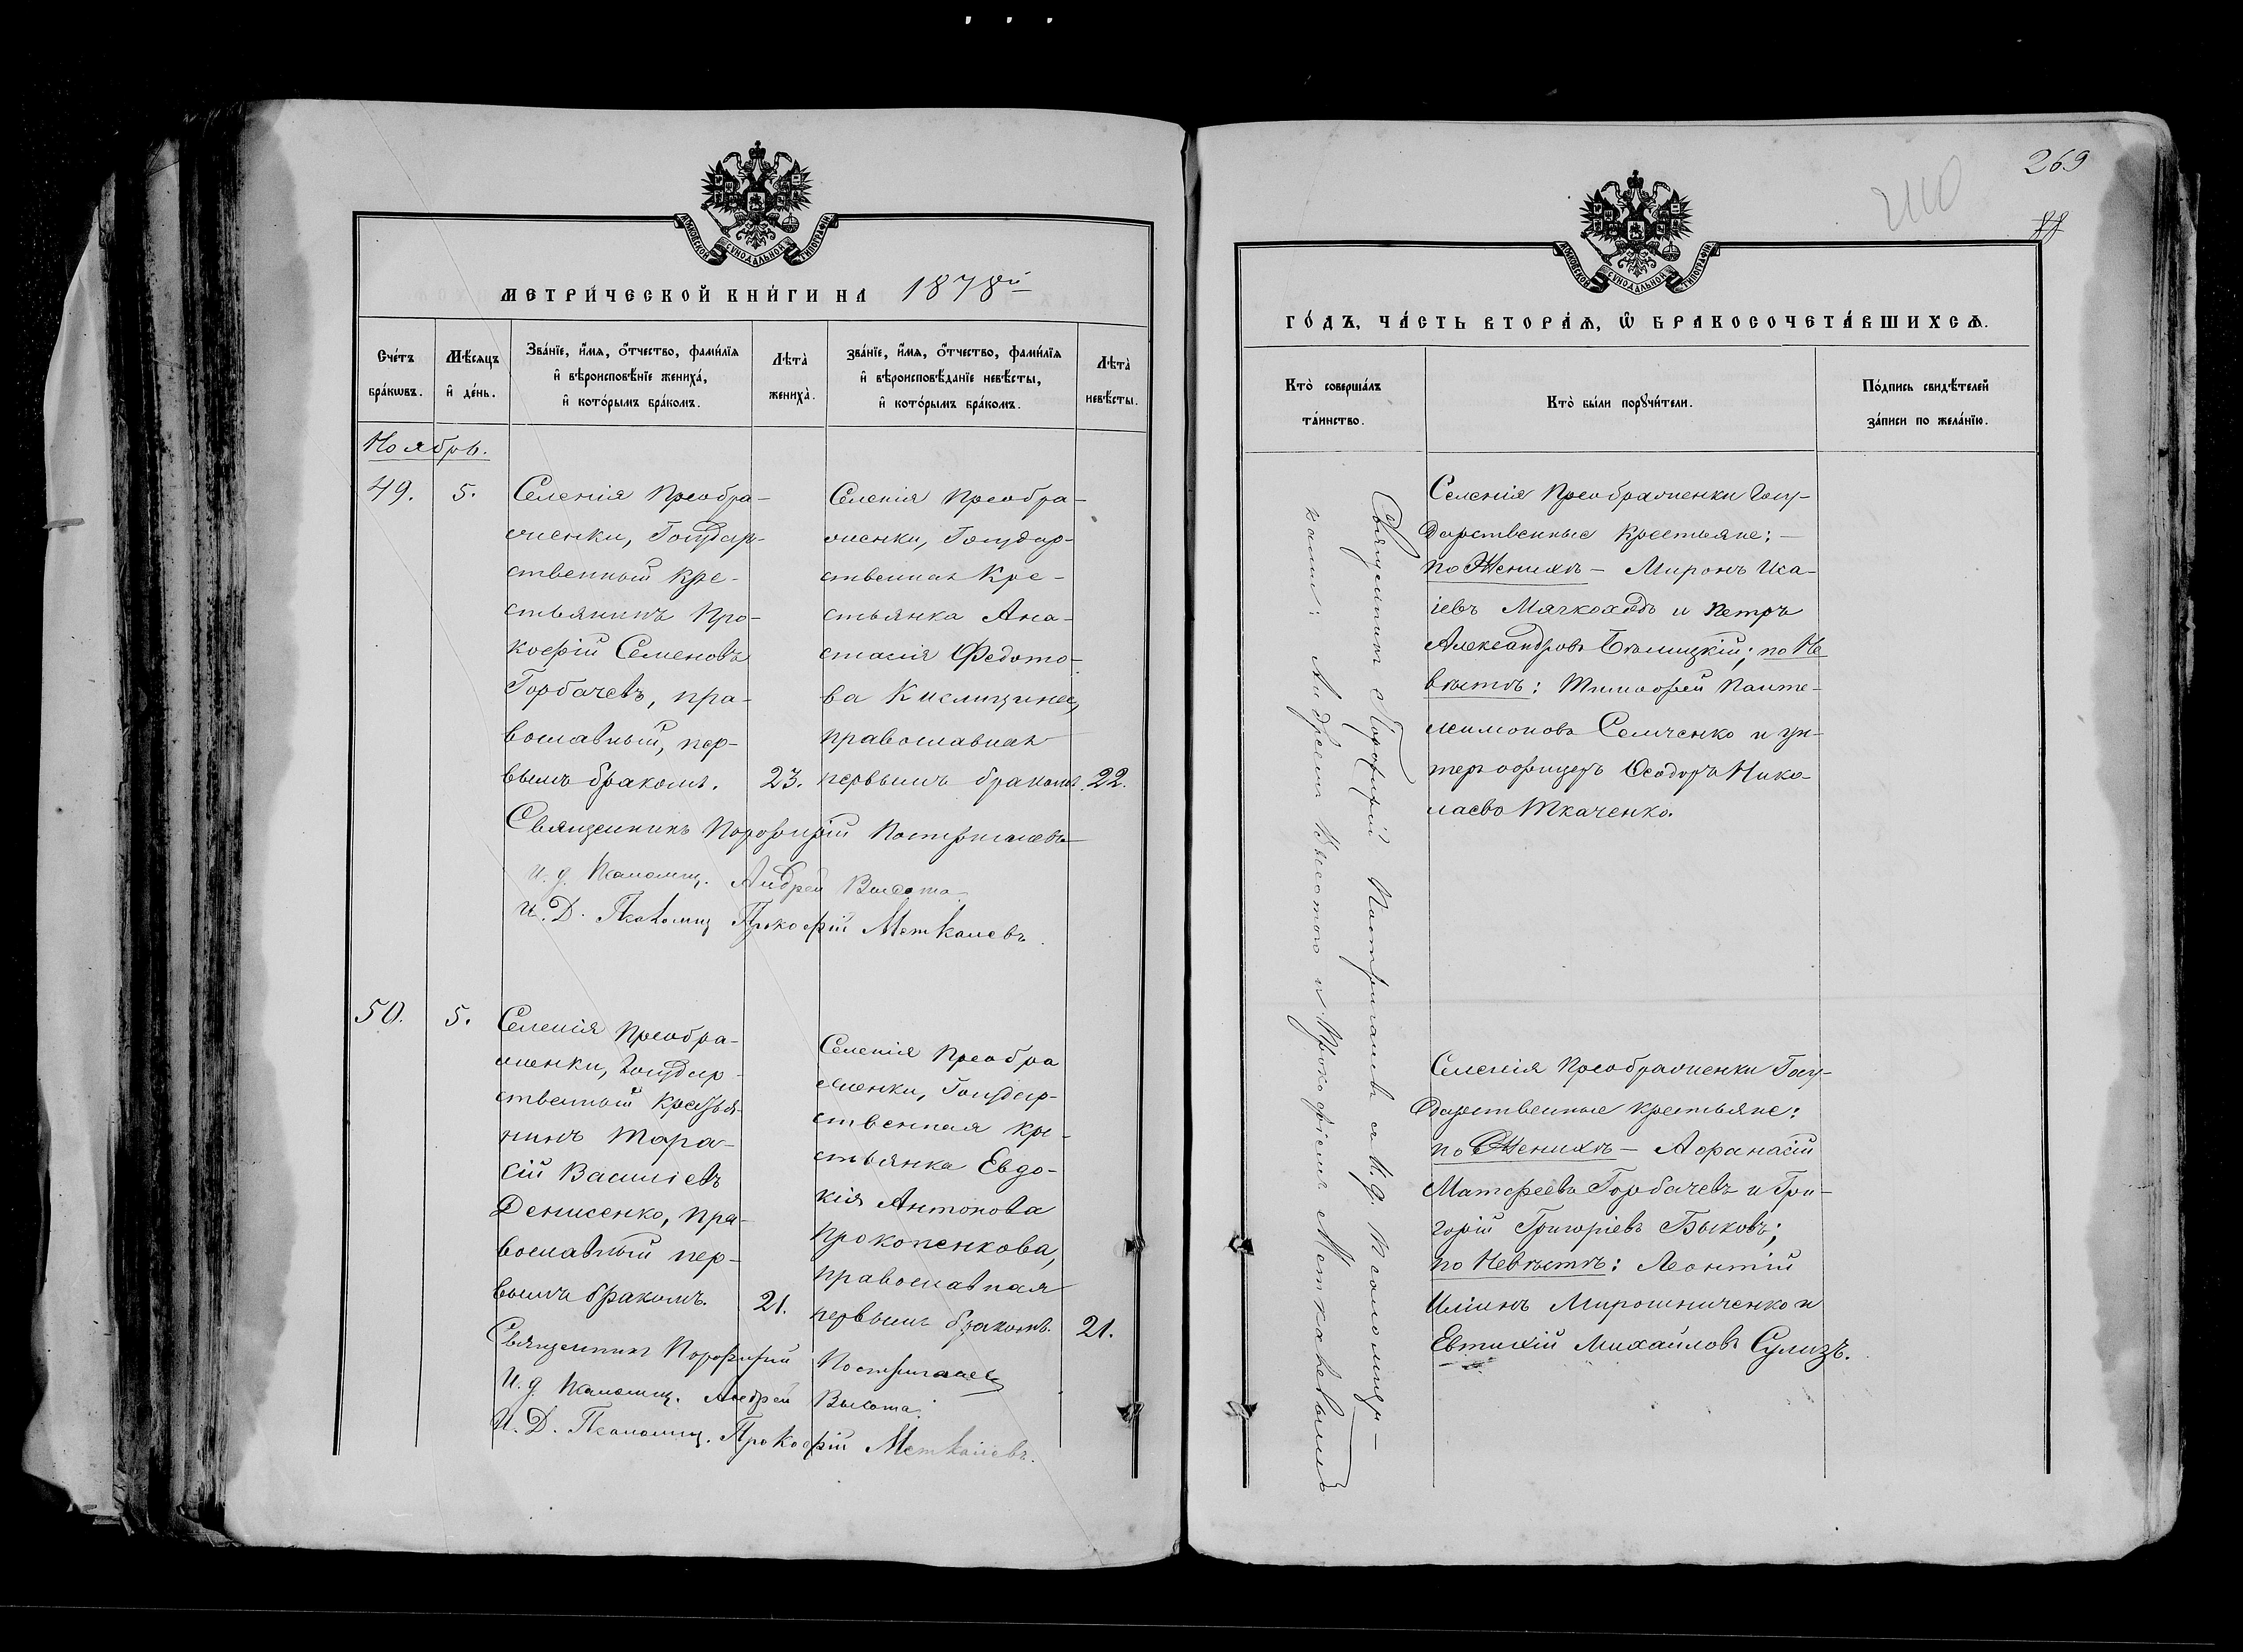 МОСКОВСКОЙ СѴНОДАЛЬНОЙ ТИПОГРАФІИ
МЕТРИ́ЧЕСКОЙ КНИ́ГИ НА 1878й
Сче́тъ бра́кѡвъ.
Мѣ́сяцъ и҆ де́нь.
Зва́нїе, и҆́мѧ, ѻ҆́тчество, фами́лїѧ
и҆ вѣроисповѣ́нїе жениха̀,
и҆ кото́рымъ бра́комъ.
Лѣта̀ жениха̀.
зва́нїе, и҆́мѧ, ѻ҆́тчество, фами́лїѧ
и҆ вѣроисповѣ́данїе невѣ́сты,
и҆ кото́рымъ бра́комъ.
Лѣта̀ невѣ́сты.
Ноябрь.
49. 5.
Селенія Преобра-
женки, Государ-
ственный Кре-
стьянинъ Про-
кофій Семеновъ
Горбачевъ, пра-
вославный, пер-
вымъ бракомъ. 23.
Селенія Преобра-
женки, Государ-
ственная Кре-
стьянка Ана-
стасія Федото-
ва Кислицина,
православная
первымъ бракомъ. 22.
Священникъ Порфирій Постригаевъ
И. д. Псаломщ. Андрей Высота
И. Д. Псаломщ Прокофій Меткалевъ.
50. 5.
Селенія Преобра-
женки, Государ-
ственный Крестья-
нинъ Тара-
сій Василіевъ
Денисенко, пра-
вославный пер-
вымъ бракомъ. 21.
Селенія Преобра
женки, Государ-
ственная кре-
стьянка Евдо-
кія Антонова
Прокопенкова,
православная
первымъ бракомъ. 21.
Священникъ Порфирій Постригаевъ
И. д. Псаломщ. Андрей Высота.
И. Д. Псаломщ. Прокофій Меткалевъ.
269
МОСКОВСКОЙ СѴНОДАЛЬНОЙ ТИПОГРАФІИ
ГО́ДЪ, ЧА́СТЬ ВТОРА́Ѧ, Ѡ҆ БРАКОСОЧЕТА́ВШИХСѦ.
Кто̀ соверша́лъ
та́инство.
Кто̀ бы́ли порꙋчи́тели.
По́дпись свидѣ́телей
за́писи по жела́нїю.
Священникъ Порфирій Постригаевъ съ И. д. Псаломщи-
ками: Андреемъ Высотою и Прокофіемъ Меткалевымъ
Селенія Преображенки Госу-
дарственные Крестьяне: —
по Женихѣ — Миронъ Иса-
іевъ Мягкоходъ и Петръ
Александровъ Бѣлицкій; по Не
вѣстѣ: Тимофей Панте-
леимоновъ Семченко и ун-
теръ офицеръ Ѳеодоръ Нико-
лаевъ Ткаченко.
Селенія Преображенки Госу-
дарственные крестьяне:
по Женихѣ — Афанасій
Матфеевъ Горбачевъ и Гри-
горій Григоріевъ Быковъ;
по Невѣстѣ: Леонтій
Иліинъ Мирошниченко и
Евтихій Михайловъ Сулизъ.